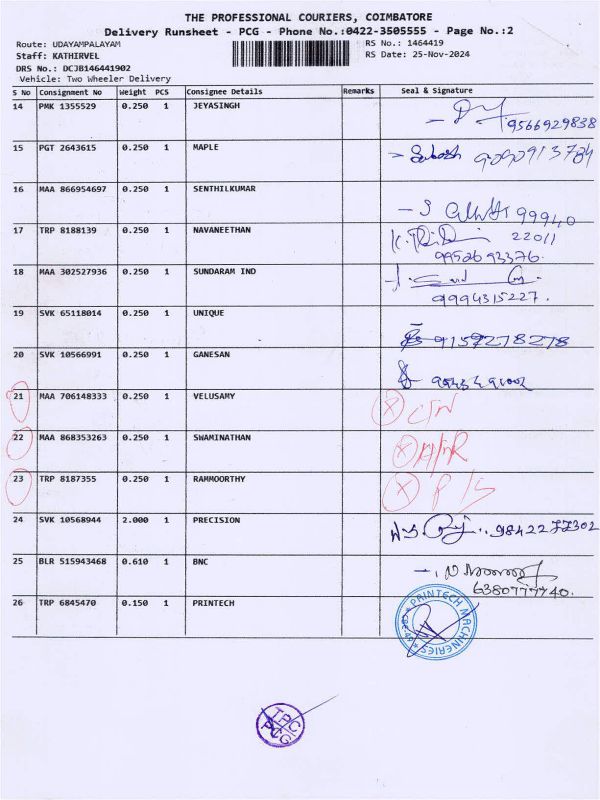 THE PROFESSIONAL COURIERS, COIMBATORE
Delivery Runsheet - PCG - Phone No.:0422-3505555 - Page No.:2
Route: UDAYAMPALAYAM RS No.: 1464419
Staff: KATHIRVEL RS Date: 25-Nov-2024
DRS No.: DCJB146441902
Vehicle: Two Wheeler Delivery
S No Consignment No Weight PCS Consignee Details Remarks Seal & Signature
14 PMK 1355529 0.250 1 JEYASINGH
9566929838
15 PGT 2643615 0.250 1 MAPLE
16 MAA 866954697 0.250 1 SENTHILKUMAR
99940
17 TRP 8188139 0.250 1 NAVANEETHAN
22011
9952693376
18 MAA 302527936 0.250 1 SUNDARAM IND
9994315227.
19 SVK 65118014 0.250 1 UNIQUE
9159278278
20 SVK 10566991 0.250 1 GANESAN
21 MAA 706148333 0.250 1 VELUSAMY
22 MAA 868353263 0.250 1 SWAMINATHAN
23 TRP 8187355 0.250 1 RAMMOORTHY
24 SVK 10568944 2.000 1 PRECISION
9842277302
25 BLR 515943468 0.610 1 BNC
6380777740.
26 TRP 6845470 0.150 1 PRINTECH
PRINTECH MACHINERIES
TPC
PCG